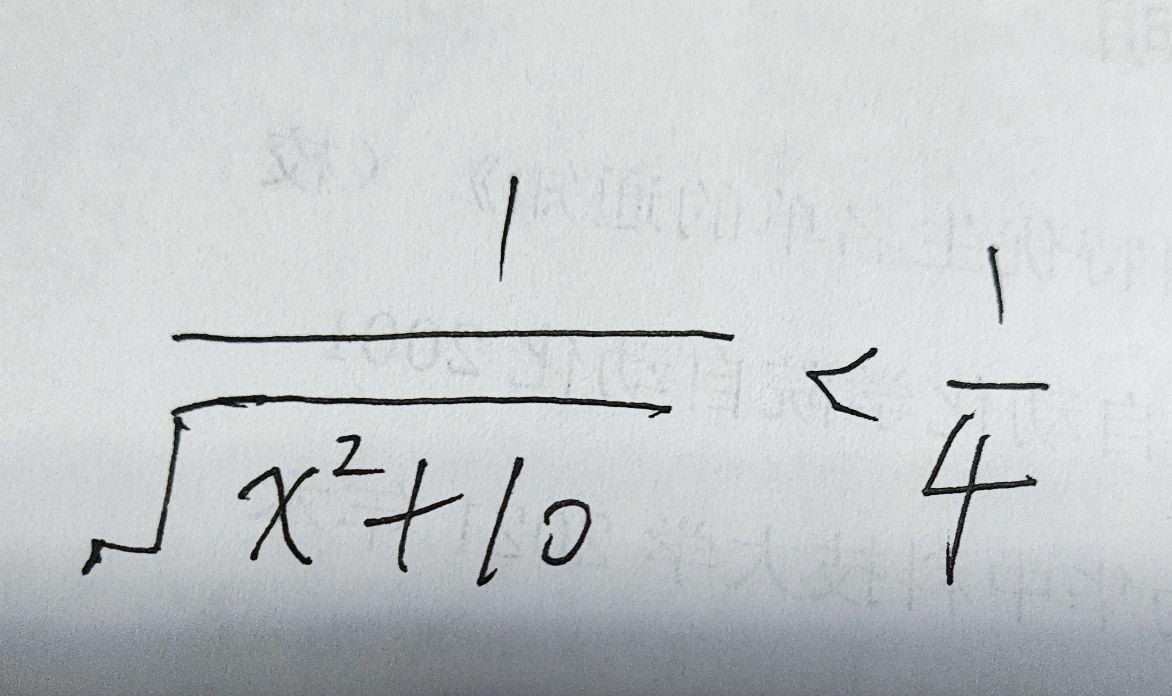 \frac{1}{\sqrt{x^2+10}} < \frac{1}{4}